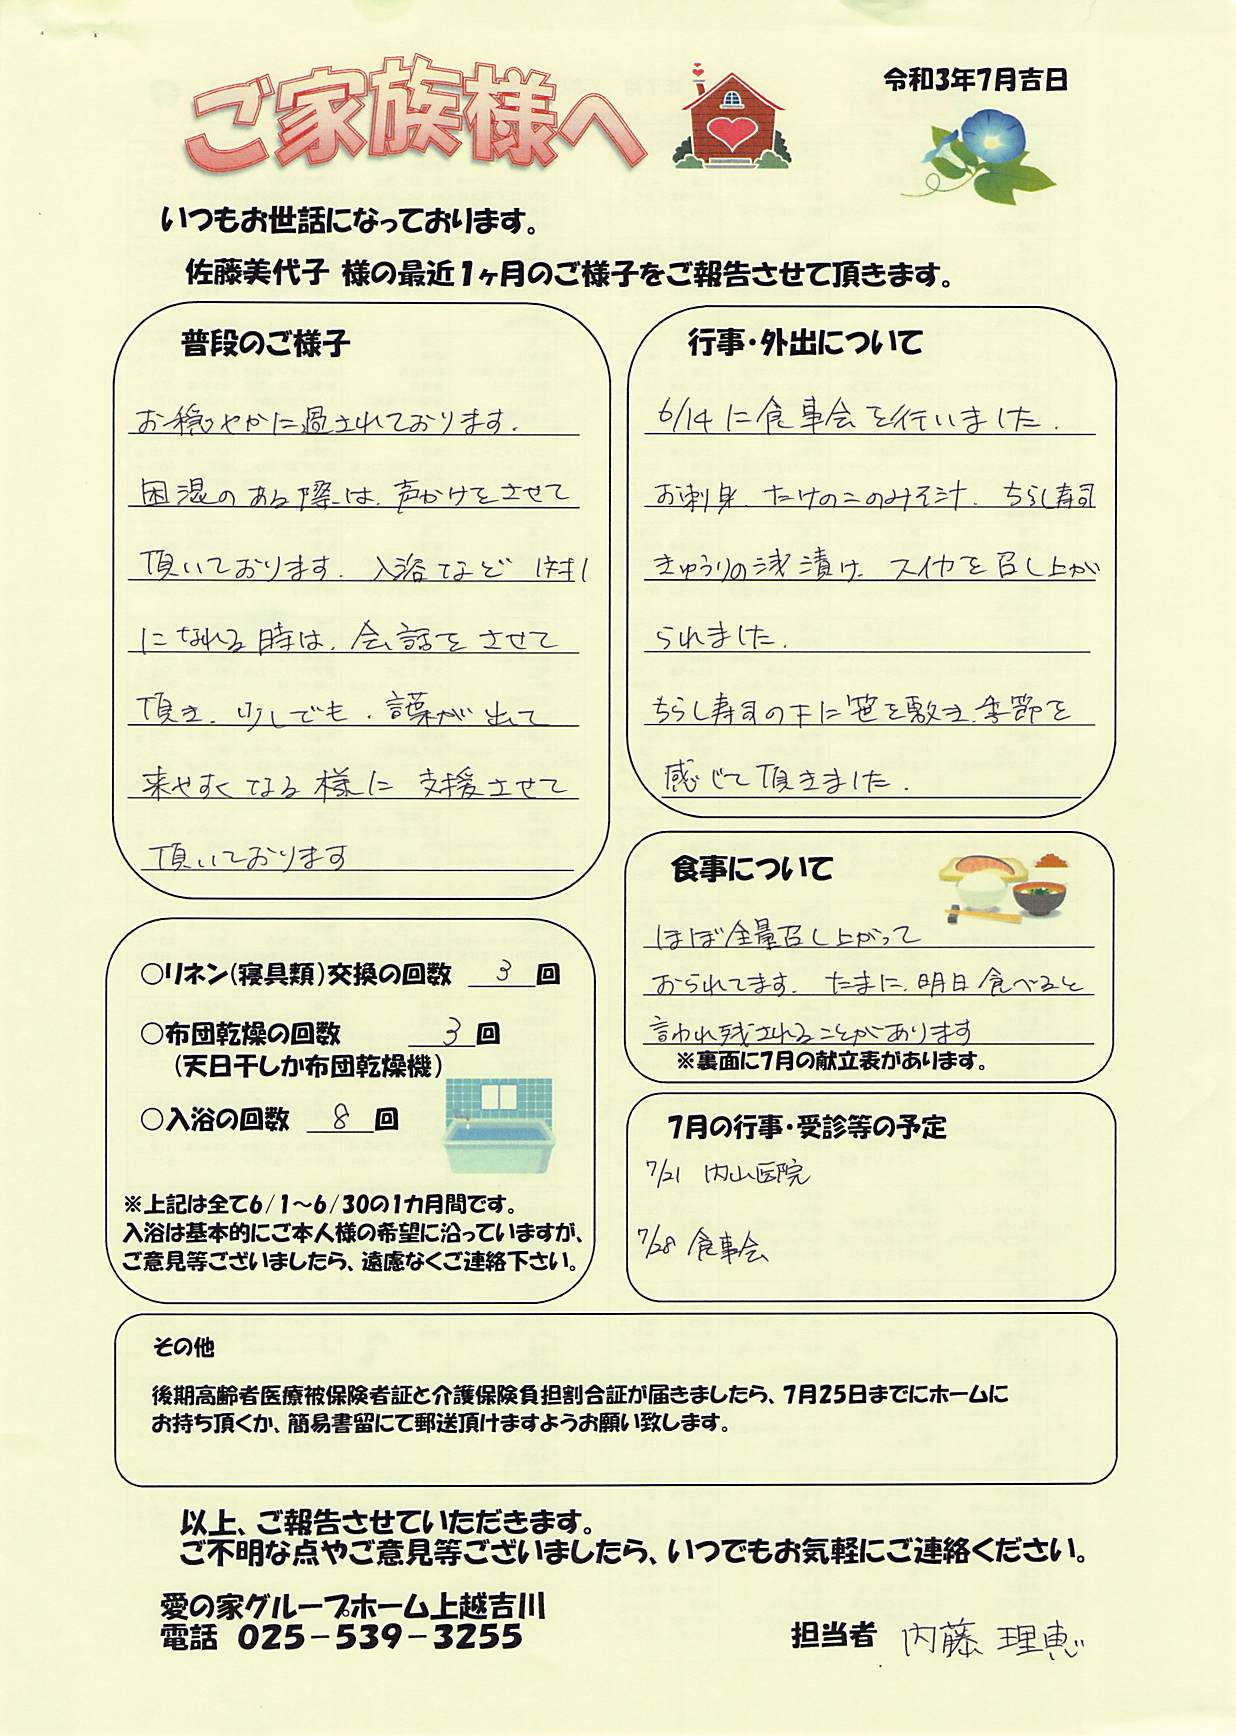 ご家族様へ
令和3年7月吉日
いつもお世話になっております。
佐藤美代子 様の最近1ヶ月のご様子をご報告させて頂きます。
普段のご様子
お穏やかに過されております.
困混のある際は、声かけをさせて
頂いております. 入浴など 1対1
になれる時は、会話をさせて
頂き、少しでも、言葉が出て
来やすくなる様に 支援させて
頂いております
行事・外出について
6/14に食事会を行いました.
お刺身、たけのこのみそ汁、ちらし寿司
きゅうりの浅漬け、スイカを召し上が
られました.
ちらし寿司の下に笹を敷き、季節を
感じて頂きました.
食事について
ほぼ全量召し上がって
おられてます. たまに、明日食べると
言われ残されることがあります
※裏面に7月の献立表があります。
○リネン(寝具類)交換の回数 3 回
○布団乾燥の回数 3 回
(天日干しか布団乾燥機)
○入浴の回数 8 回
※上記は全て6/1～6/30の1カ月間です。
入浴は基本的にご本人様の希望に沿っていますが、
ご意見等ございましたら、遠慮なくご連絡下さい。
7月の行事・受診等の予定
7/21 内山医院
7/28 食事会
その他
後期高齢者医療被保険者証と介護保険負担割合証が届きましたら、7月25日までにホームに
お持ち頂くか、簡易書留にて郵送頂けますようお願い致します。
以上、ご報告させていただきます。
ご不明な点やご意見等ございましたら、いつでもお気軽にご連絡ください。
愛の家グループホーム上越吉川
電話 025-539-3255
担当者 内藤 理恵